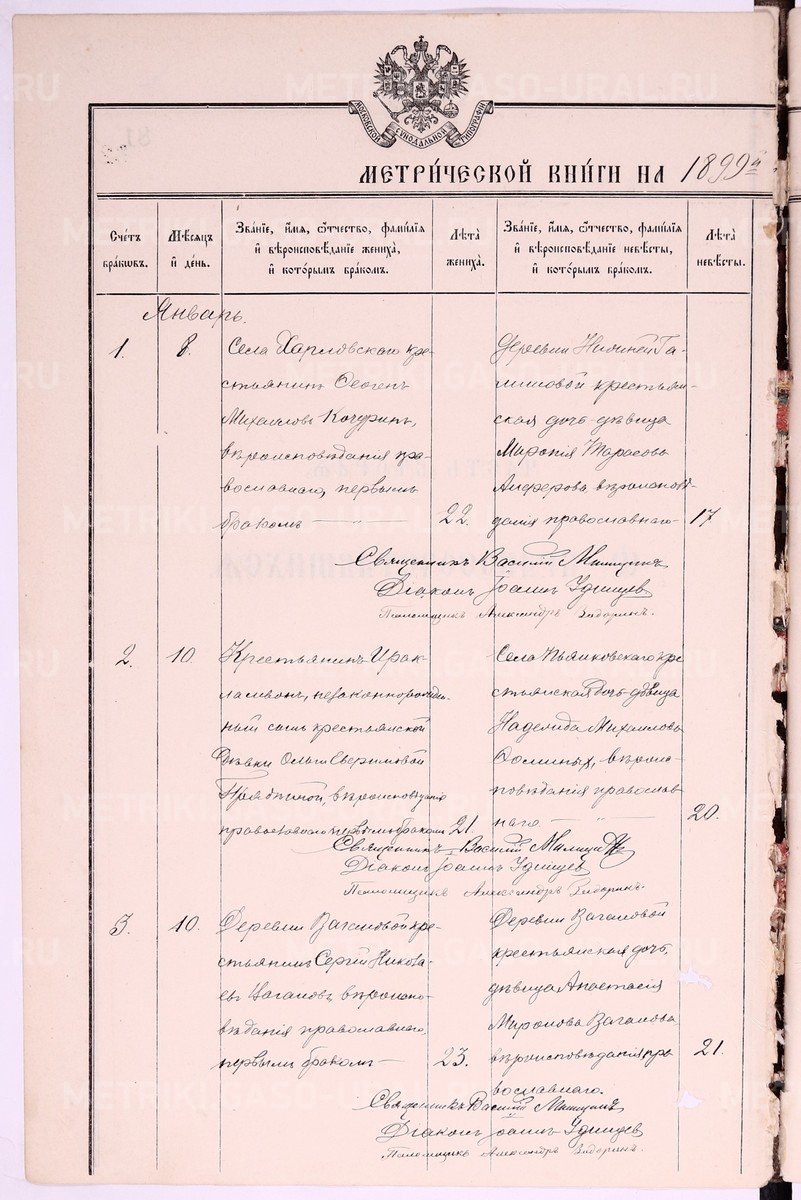 МОСКОВСКОЙ СѴНОДАЛЬНОЙ ТИПОГРАФІИ
МЕТРИ́ЧЕСКОЙ КНИ́ГИ НА 1899й
Сче́тъ бра́ковъ.
Мѣ́сяцъ и҆ де́нь.
Зва́нїе, и҆́мя, ѻ҆́тчество, фами́лїя
и҆ вѣроисповѣ́данїе жениха̀,
и҆ кото́рымъ бра́комъ.
Лѣ́та жениха̀.
Зва́нїе, и҆́мя, ѻ҆́тчество, фами́лїя
и҆ вѣроисповѣ́данїе невѣ́сты,
и҆ кото́рымъ бра́комъ.
Лѣ́та невѣ́сты.
Январь.
1.
8.
Села Харловскаго кре-
стьянинъ
Михаиловъ Кочуринъ,
вѣроисповѣданія пра-
вославнаго, первымъ
бракомъ — „ —
22.
Деревни Нижней Га-
крестьян-
ская дочь дѣвица
Тарасова
Алферова, вѣроисповѣ-
данія православнаго-
17
Священникъ Василій
Діаконъ Іоаннъ Удинцев
Псаломщикъ Александръ
2.
10.
Крестьянинъ Ирак-
незаконнорожден-
ный сынъ крестьянской
дѣвки Ольги
вѣроисповѣданія
православнаго первымъ бракомъ
21.
Села кре-
стьянская дочь дѣвица
Надежда Михаилова
вѣроис-
повѣданія православ-
наго. — „ —
20.
Священникъ Василій
Діаконъ Іоаннъ Удинцев
Псаломщикъ Александръ
3.
10.
Деревни Вагановой кре-
стьянинъ Сергій Никола-
евъ Вагановъ, вѣроиспо-
вѣданія православнаго,
первымъ бракомъ —
23.
Деревни Вагановой
крестьянская дочь,
дѣвица Анастасія
Миронова Ваганова
вѣроисповѣданія пра
вославнаго.
21.
Священникъ Василій
Діаконъ Іоаннъ Удинцев
Псаломщикъ Александръ
METRIKI.GASO-URAL.RU